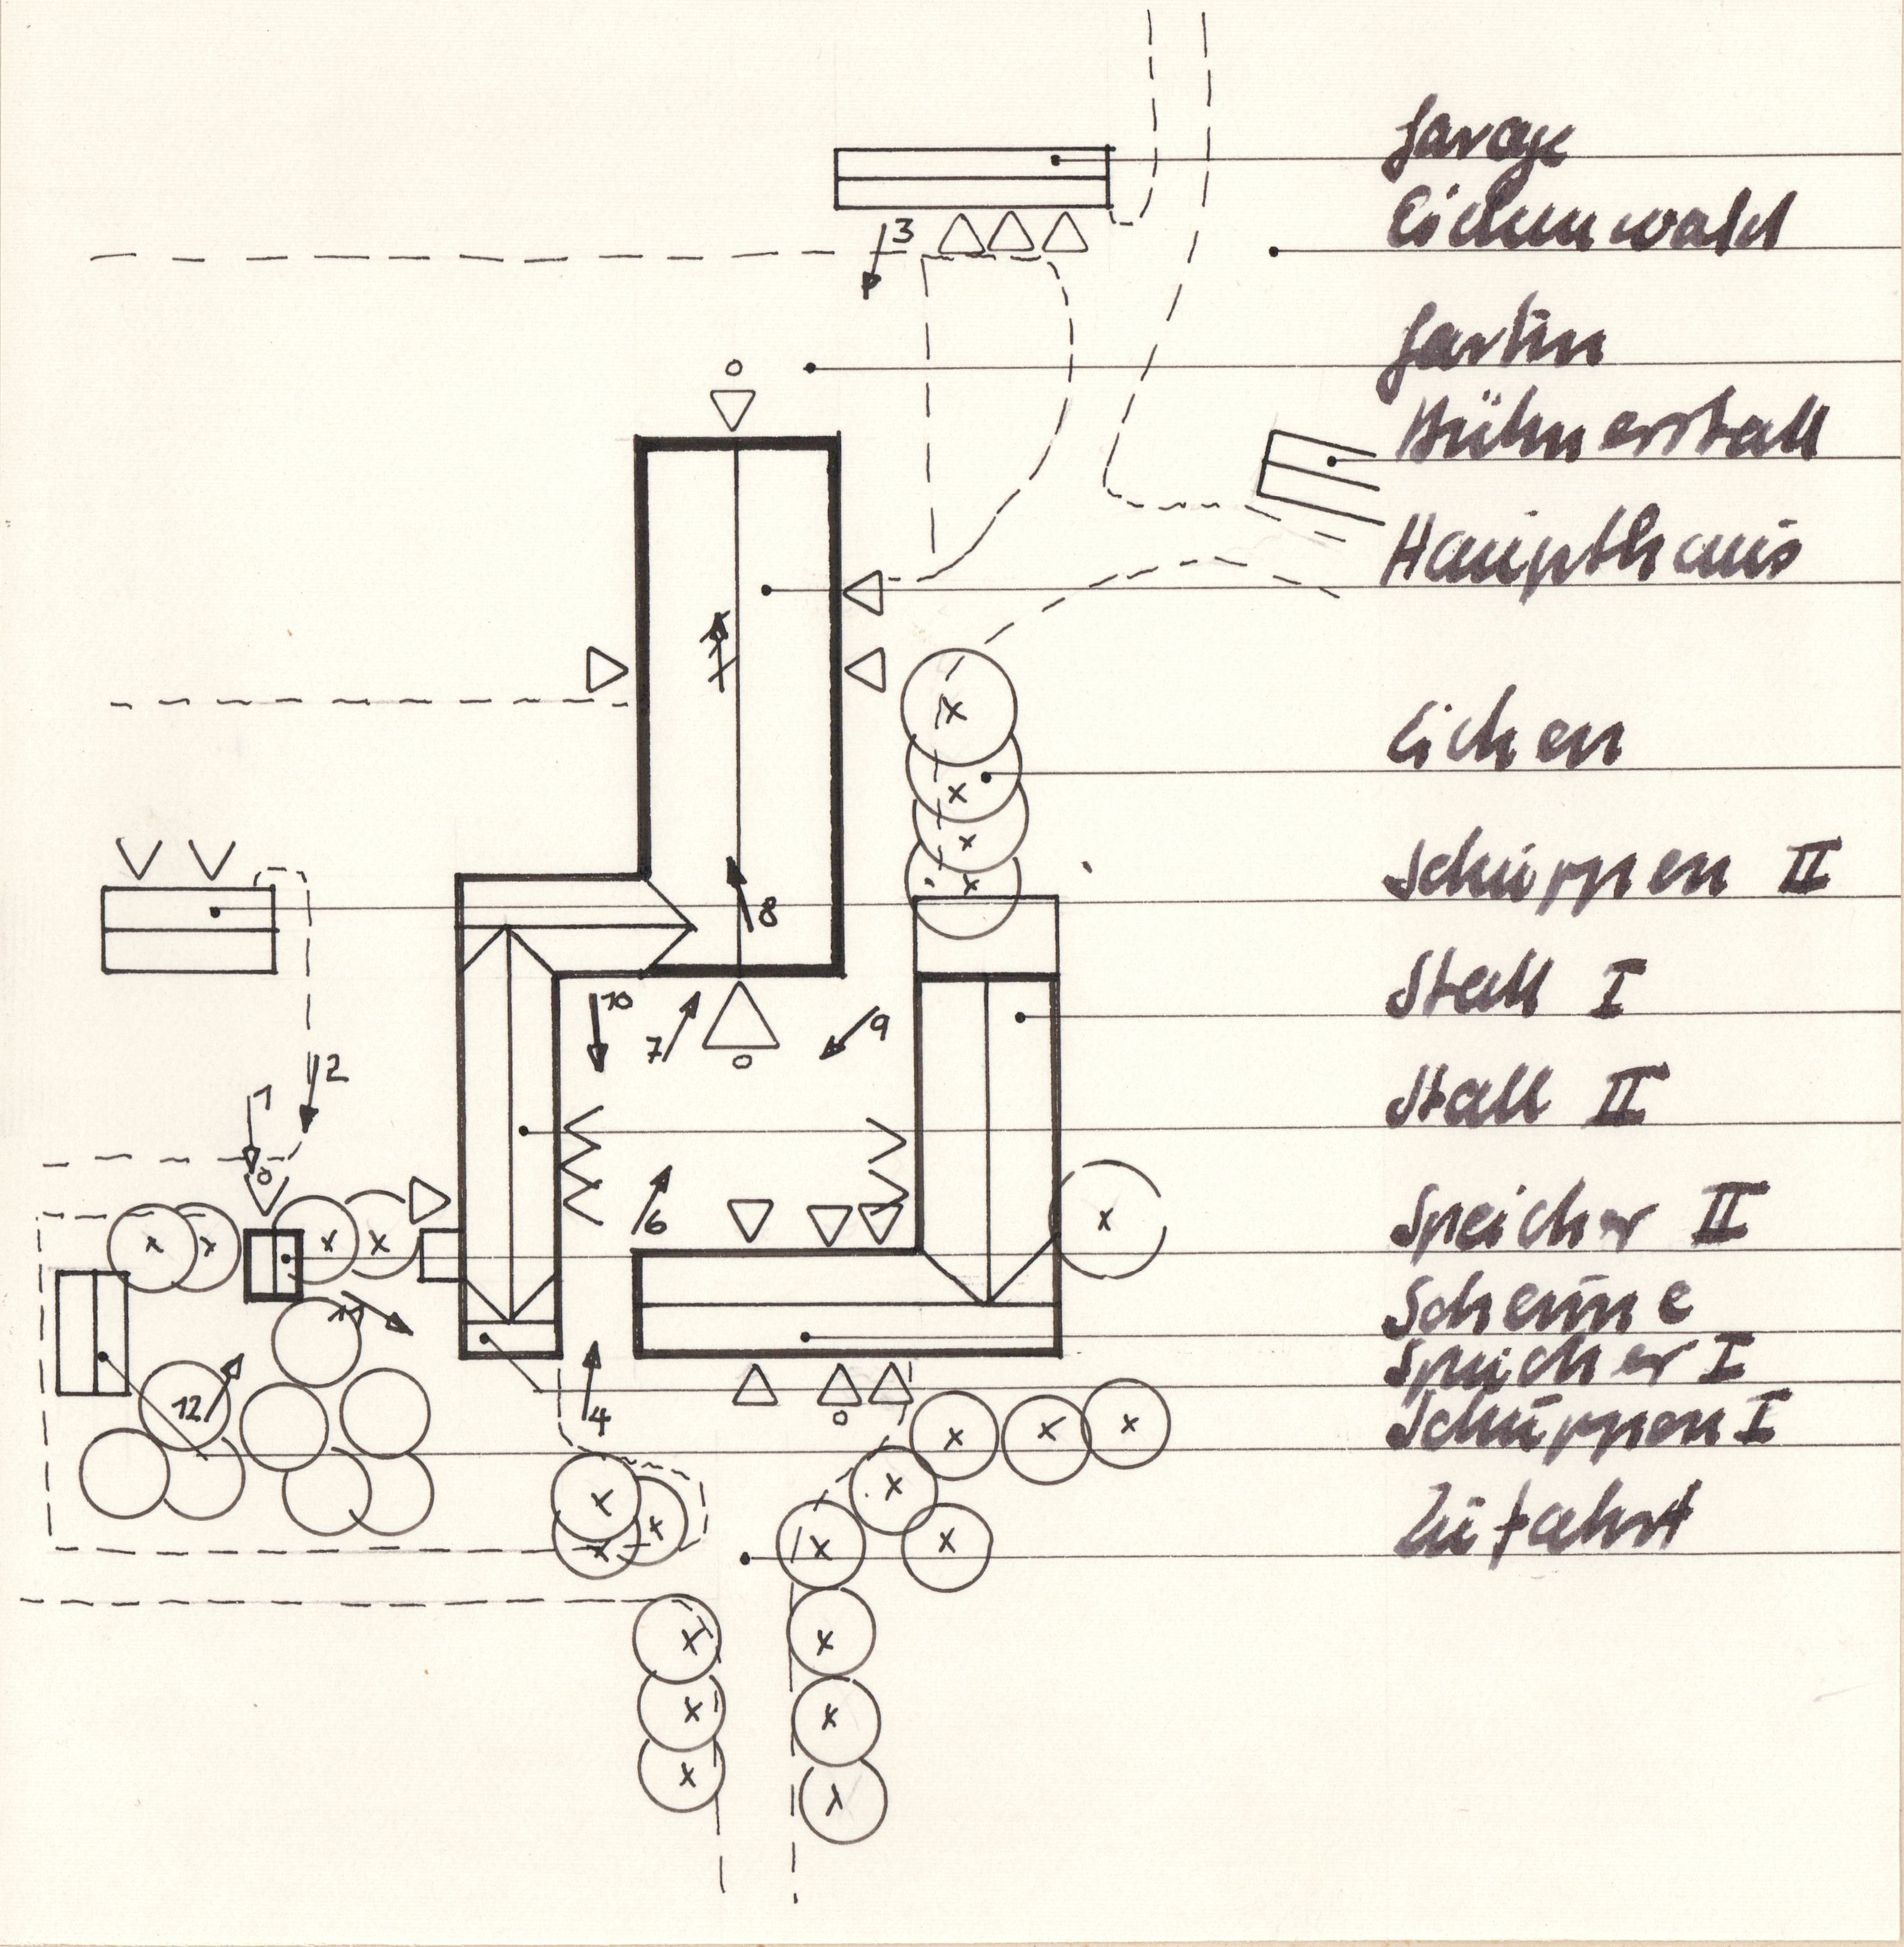 Garage
Eichenwald
3
Garten
Hühnerstall
Haupthaus
Eichen
Schuppen II
8
Stall I
10
7
9
Stall II
2
1
Speicher II
6
Scheune
11
Speicher I
12
4
Schuppen I
Zufahrt